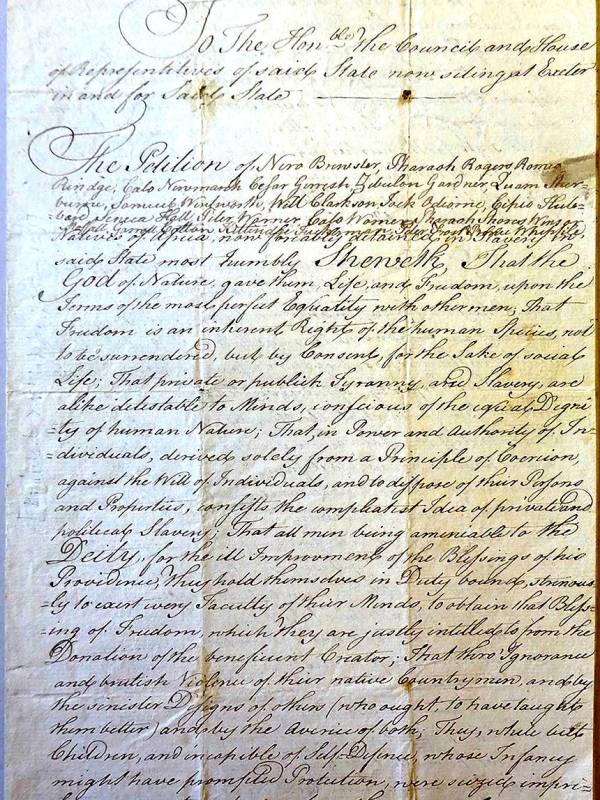 To The Hon.ble the Council and House
of Representitives of said State now siting at Exeter
in and for Said State
The Petition of Nero Brewster, Pharaoh Rogers Romeo
Rindge, Cato Newmarch Cesar Gerrish Zebulon Gardner, Quam Sher-
burne, Samuel Wentworth, Will Clarkson Jack Odiorne, Cipio Hub-
bard Seneca Hall Peter Warner, Cato Warner, Pharaoh Shores Winsor
Moffatt Garrott Cotton Kittindge Tuckerman Peter Frost Prince Whipple
Natives of Africa, now forcibly detained in Slavery, in
said State most humbly Sheweth, That the
God of Nature, gave them, Life, and Freedom, upon the
Terms of the most perfect Equality with other men; That
Freedom is an inherent Right of the human Species, not
to be surrendered, but by Consent, for the Sake of social
Life; That private or publick Tyranny, and Slavery, are
alike detestable to Minds, conscious of the equal Digni-
=ty of human Nature; That in Power and Authority of In-
=dividuals, derived solely from a Principle of Coercion,
against the Will of Individuals, and to dispose of their Persons
and Properties, consists the compleatest Idea of private and
political Slavery; That all men being ameniable to the
Deity, for the ill Improvement of the Blessings of his
Providence, They hold themselves in Duty bound, strenuous-
=ly to exert every Faculty of their Minds, to obtain that Bless-
=ing of Freedom, which they are justly intitled to from the
Donation of the beneficent Creator; That thro' Ignorance
and brutish Violence of their native Countrymen, and by
the sinister Designs of others (who ought to have taught
them better) and by the Avarice of both; They, while but
Children, and incapible of Self-Defence, whose Infancy
might have prompted Protection, were seized impri-